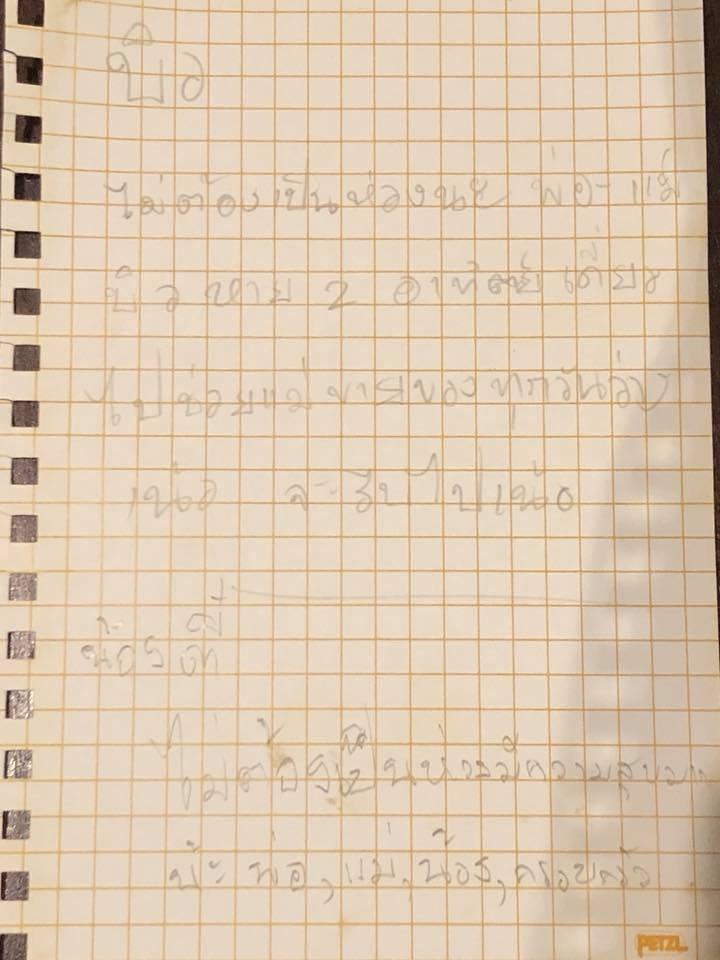 บิว
ไม่ต้องเป็นห่วงนะ พ่อ-แม่
บิวหาย 2 อาทิตย์ เดี๋ยว
ไปช่วยแม่ขายของทุกวัน
เน้อ จะรีบไปเน้อ
น้อง
ไม่ต้องเป็นห่วงมีความสุขมาก
พ่อ, แม่, น้อง, ครอบครัว
PETZL